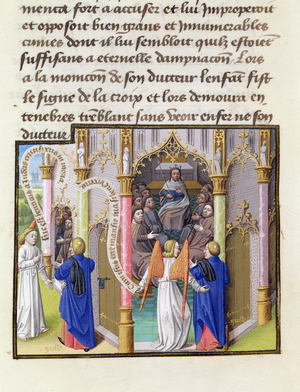 menca fort a accuser et lui Improperoit
et opposoit bien grans et innumerables
crimes dont il lui sembloit quilz estoient
suffisans a eternelle dampnacion. Lors
a la monicion de son ducteur lenfant fist
le signe de la croix et lors demoura en
tenebres tremblant sans veoir enfer ne son
ducteur